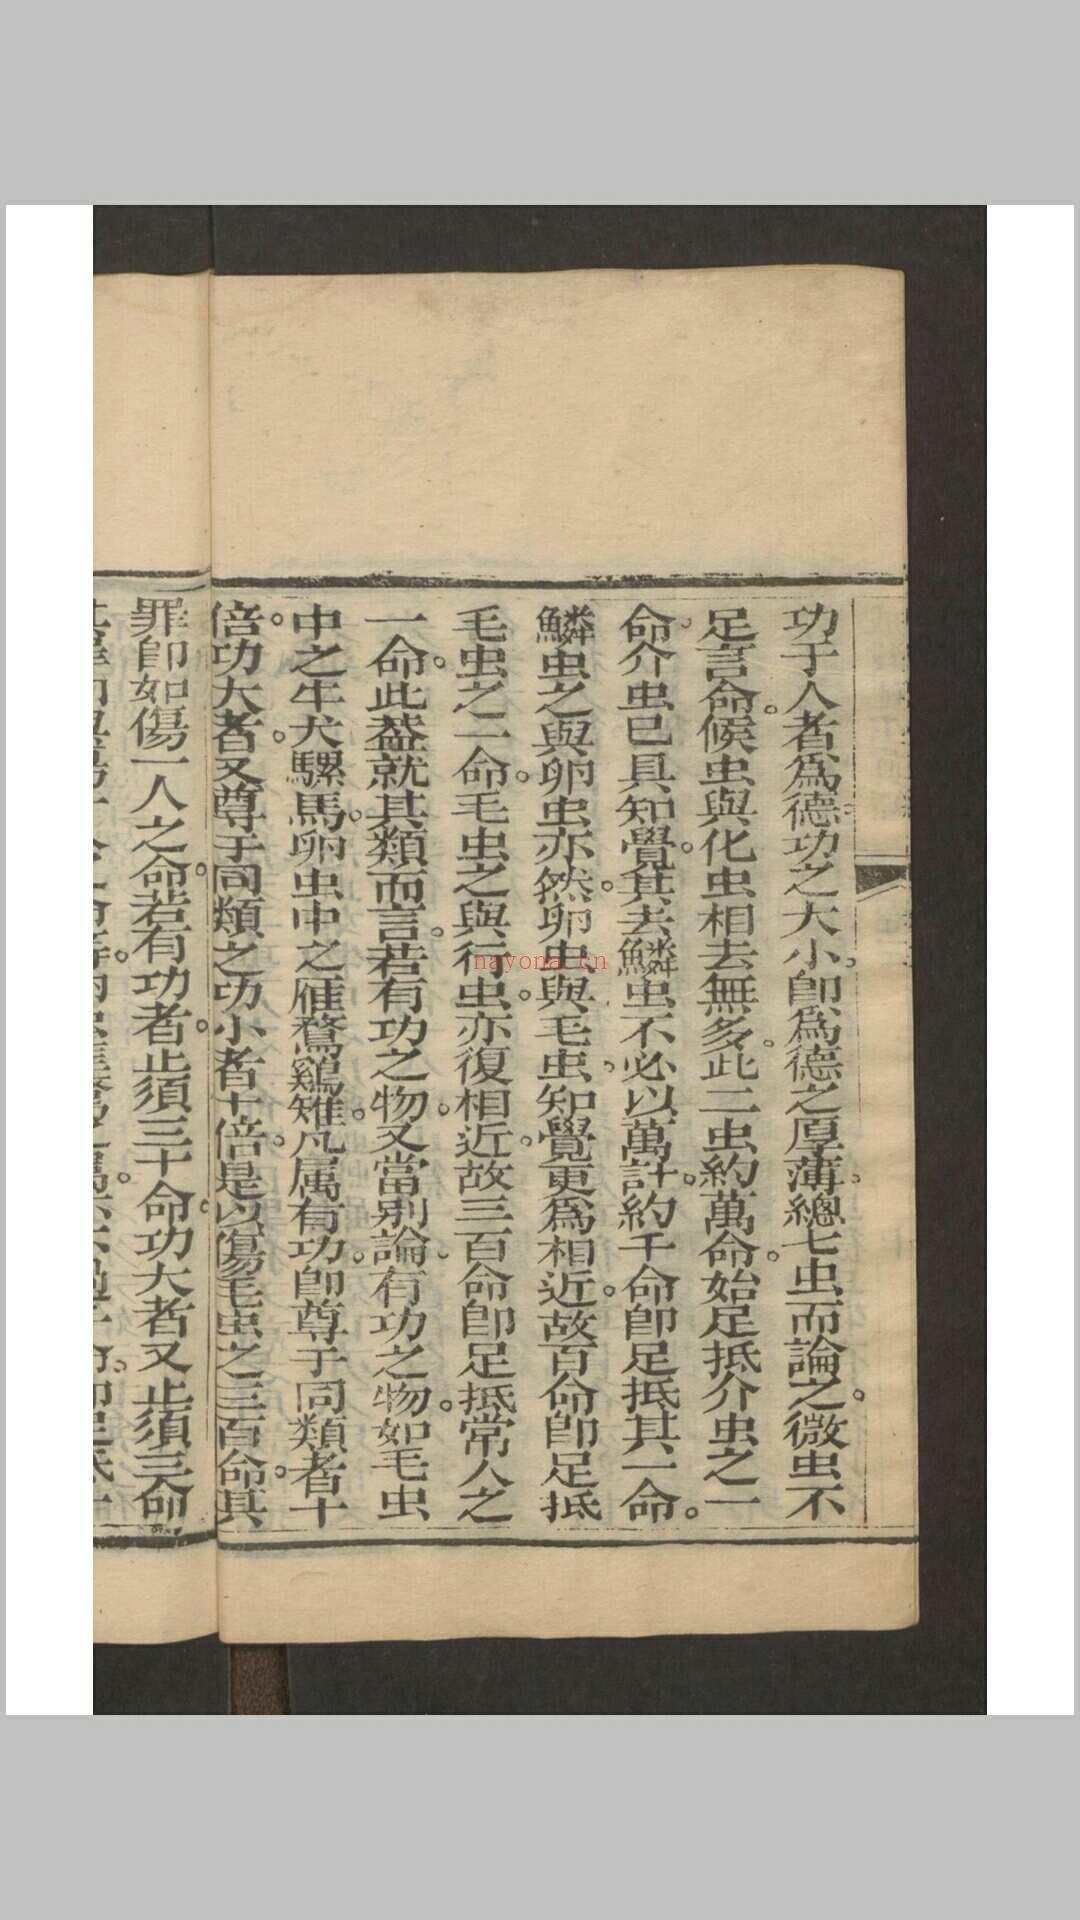 功于人者爲德功之大小。卽爲德之厚薄。總七虫而論之。微虫不
足言命。候虫與化虫相去無多。此二虫約萬命。始足抵介虫之一
命。介虫已具知覺。其去鱗虫不必以萬計。約千命卽足抵其一命。
鱗虫之與卵虫亦然。卵虫與毛虫。知覺更爲相近。故百命卽足抵
毛虫之一命。毛虫之與行虫。亦復相近。故三百命卽足抵常人之
一命。此葢就其類而言。若有功之物。又當別論。有功之物。如毛虫
中之牛犬騾馬。卵虫中之雁鶩鷄雉。凡属有功。卽尊于同類者十
倍。功大者。又尊于同類之功小者十倍。是以傷毛虫之三百命。其
罪卽如傷一人之命。若有功者。止須三十命。功大者又止須三命
nayona.cn